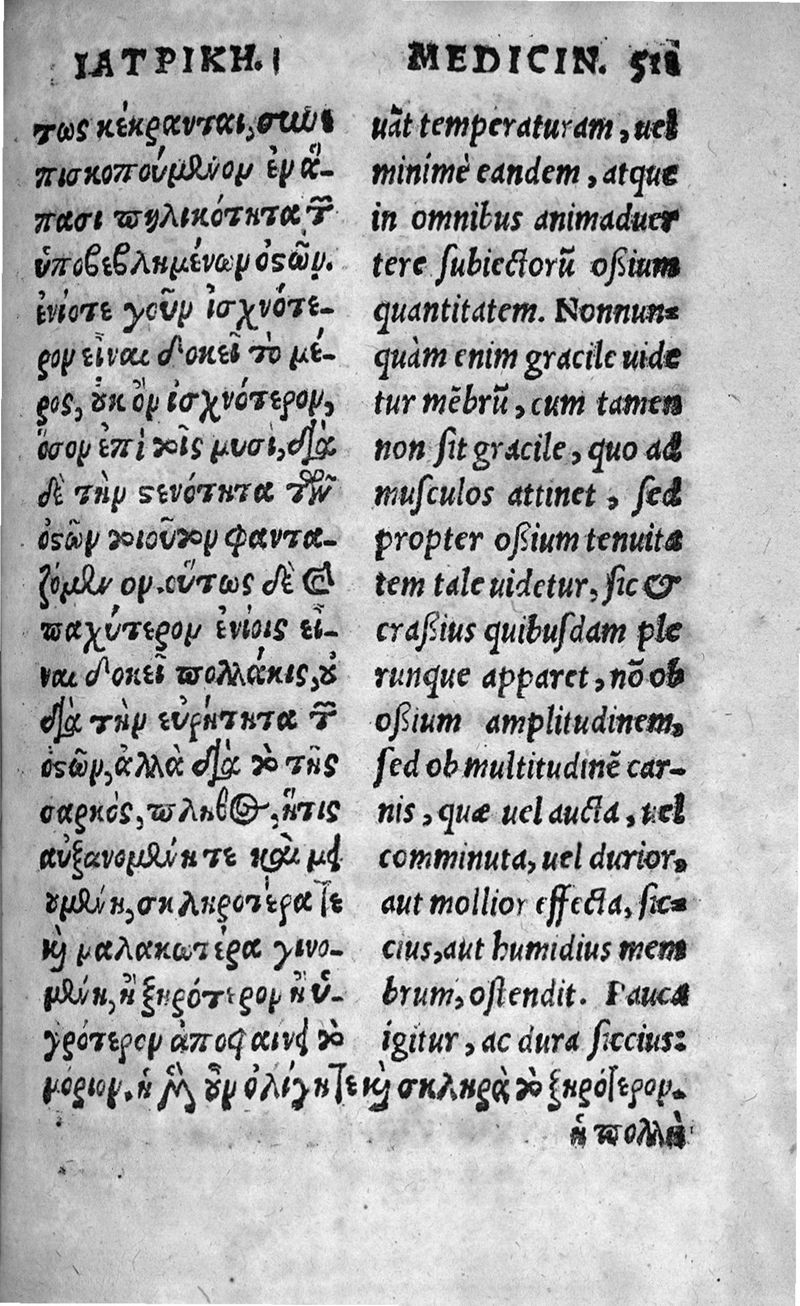 ΙΑΤΡΙΚΗ.
τως κέκρανται, συνε
πισκοπούμενον ἐν ἅ-
πασι πηλικότητα τῶν
ὑποβεβλημένων ὀστῶν.
ἐνίοτε γοῦν ἰσχνότε-
ρον εἶναι δοκεῖ τὸ μέ-
ρος, οὐκ ὂν ἰσχνότερον,
ὅσον ἐπὶ τοῖς μυσὶ, διὰ
δὲ τὴν στενότητα τῶν
ὀστῶν τοιοῦτον φαντα-
ζόμενον. οὕτως δὲ καὶ
παχύτερον ἐνίοις εἶ-
ναι δοκεῖ πολλάκις, οὐ
διὰ τὴν εὐρήτητα τῶν
ὀστῶν, ἀλλὰ διὰ τὸ τῆς
σαρκὸς, πλῆθος, ἥτις
αὐξανομένη τε καὶ μει
ουμένη, σκληροτέρα τε
καὶ μαλακωτέρα γινο-
μένη, ἢ ξηρότερον ἢ ὑ-
γρότερον ἀποφαίνει τὸ
μόριον. ἡ μὲν οὖν ὀλίγη τε καὶ σκληρὰ τὸ ξηρότερον.
ἡ πολλὴ
MEDICIN. 511
uãt temperaturam, uel
minimè eandem, atque
in omnibus animaduer
tere ſubiectorũ oßium
quantitatem. Nonnun-
quàm enim gracile uide
tur mẽbrũ, cum tamen
non ſit gracile, quo ad
muſculos attinet, ſed
propter oßium tenuita
tem tale uidetur, ſic &
craßius quibuſdam ple
runque apparet, nõ ob
oßium amplitudinem,
ſed ob multitudinẽ car-
nis, quæ uel aucta, uel
comminuta, uel durior,
aut mollior effecta, ſic-
cius, aut humidius mem
brum, oſtendit. Pauca
igitur, ac dura ſiccius: